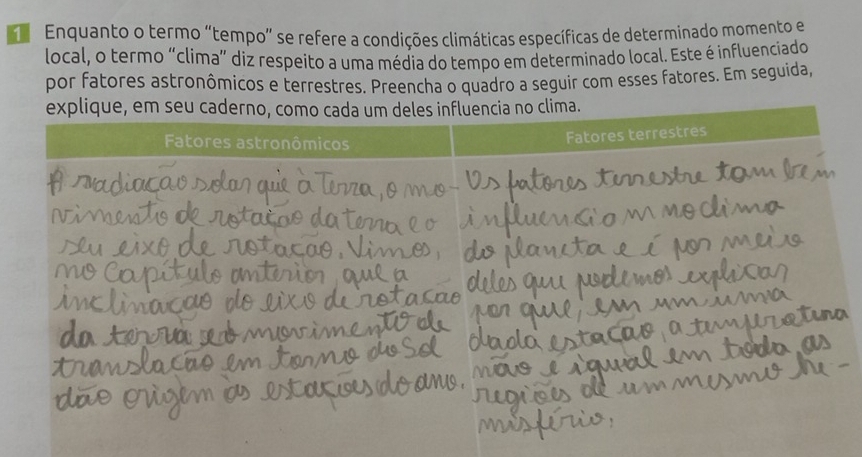 1 Enquanto o termo "tempo" se refere a condições climáticas específicas de determinado momento e
local, o termo "clima" diz respeito a uma média do tempo em determinado local. Este é influenciado
por fatores astronômicos e terrestres. Preencha o quadro a seguir com esses fatores. Em seguida,
explique, em seu caderno, como cada um deles influencia no clima.
Fatores astronômicos
A radiação solar que à Terra, o mo-
vimento de rotação da terra e o
seu eixo de rotação. Vimos,
no Capítulo anterior que a
inclinação do eixo de rotação
da terra e o movimento de
translação em torno do Sol
dão origem as estações do ano.
Fatores terrestres
Os fatores terrestre também
influenciam no clima
do planeta e é por meio
deles que podemos explicar
por que, em uma
dada estação, a temperatura
não é igual em toda as
regiões de um mesmo he-
misfério.